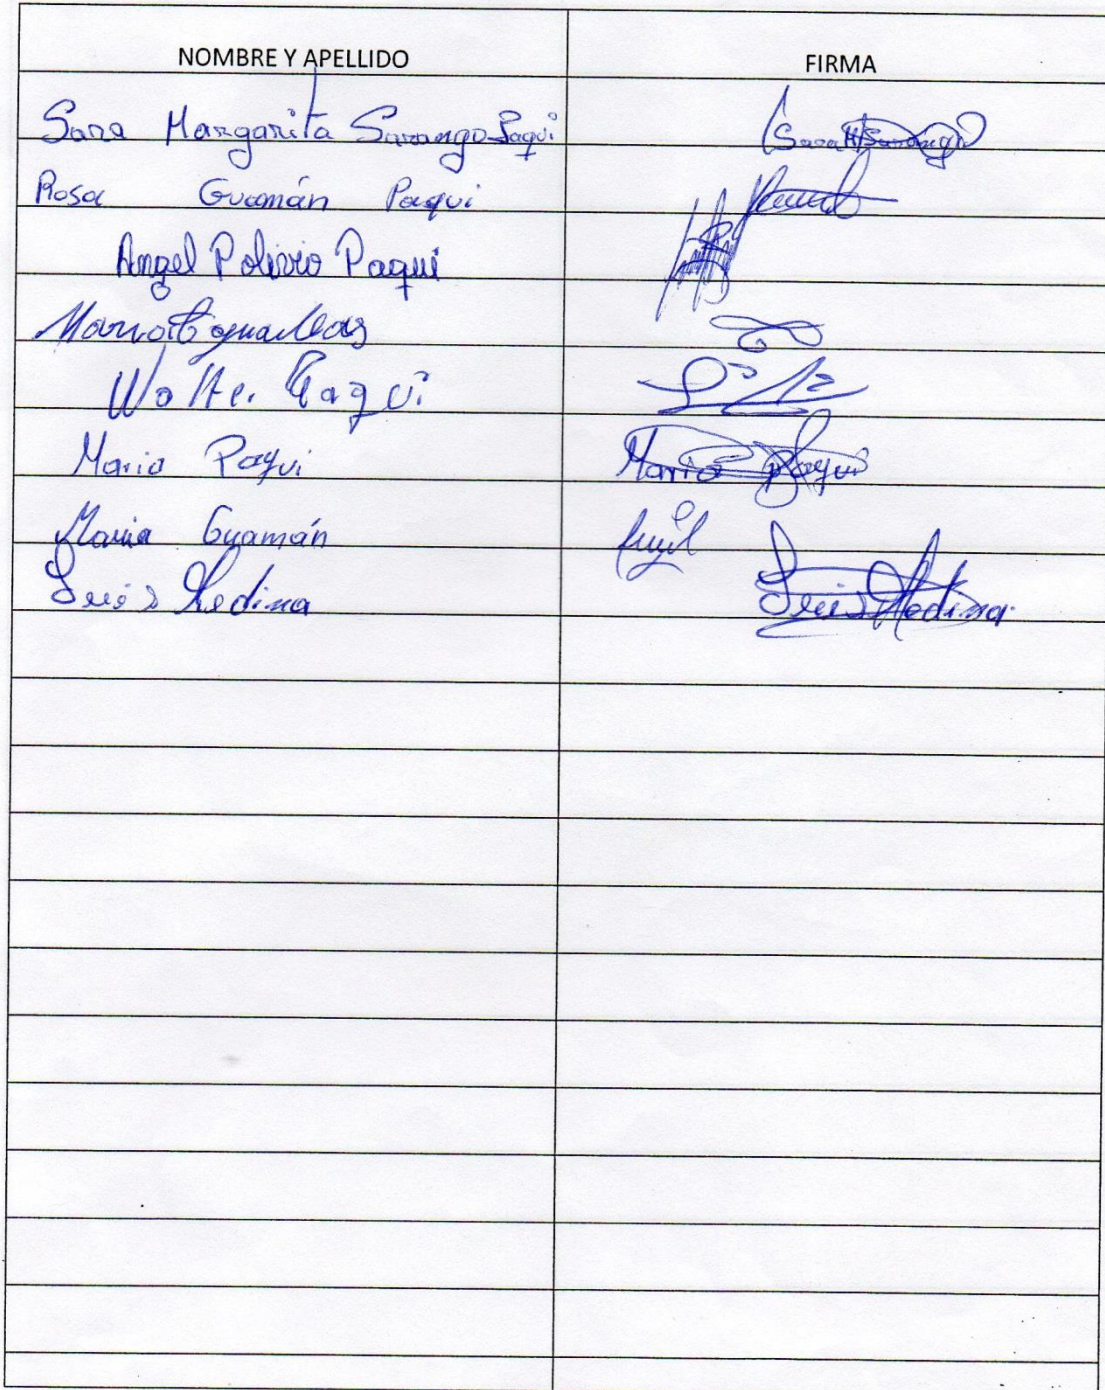 NOMBRE Y APELLIDO FIRMA
Sara Margarita Sarango Paqui Sara M Sarango
Rosa Guamán Paqui
Angel Polivio Paqui
Maria
Walter Paqui
Maria Paqui Maria Paqui
Maria Guamán
Luis Medina Luis Medina